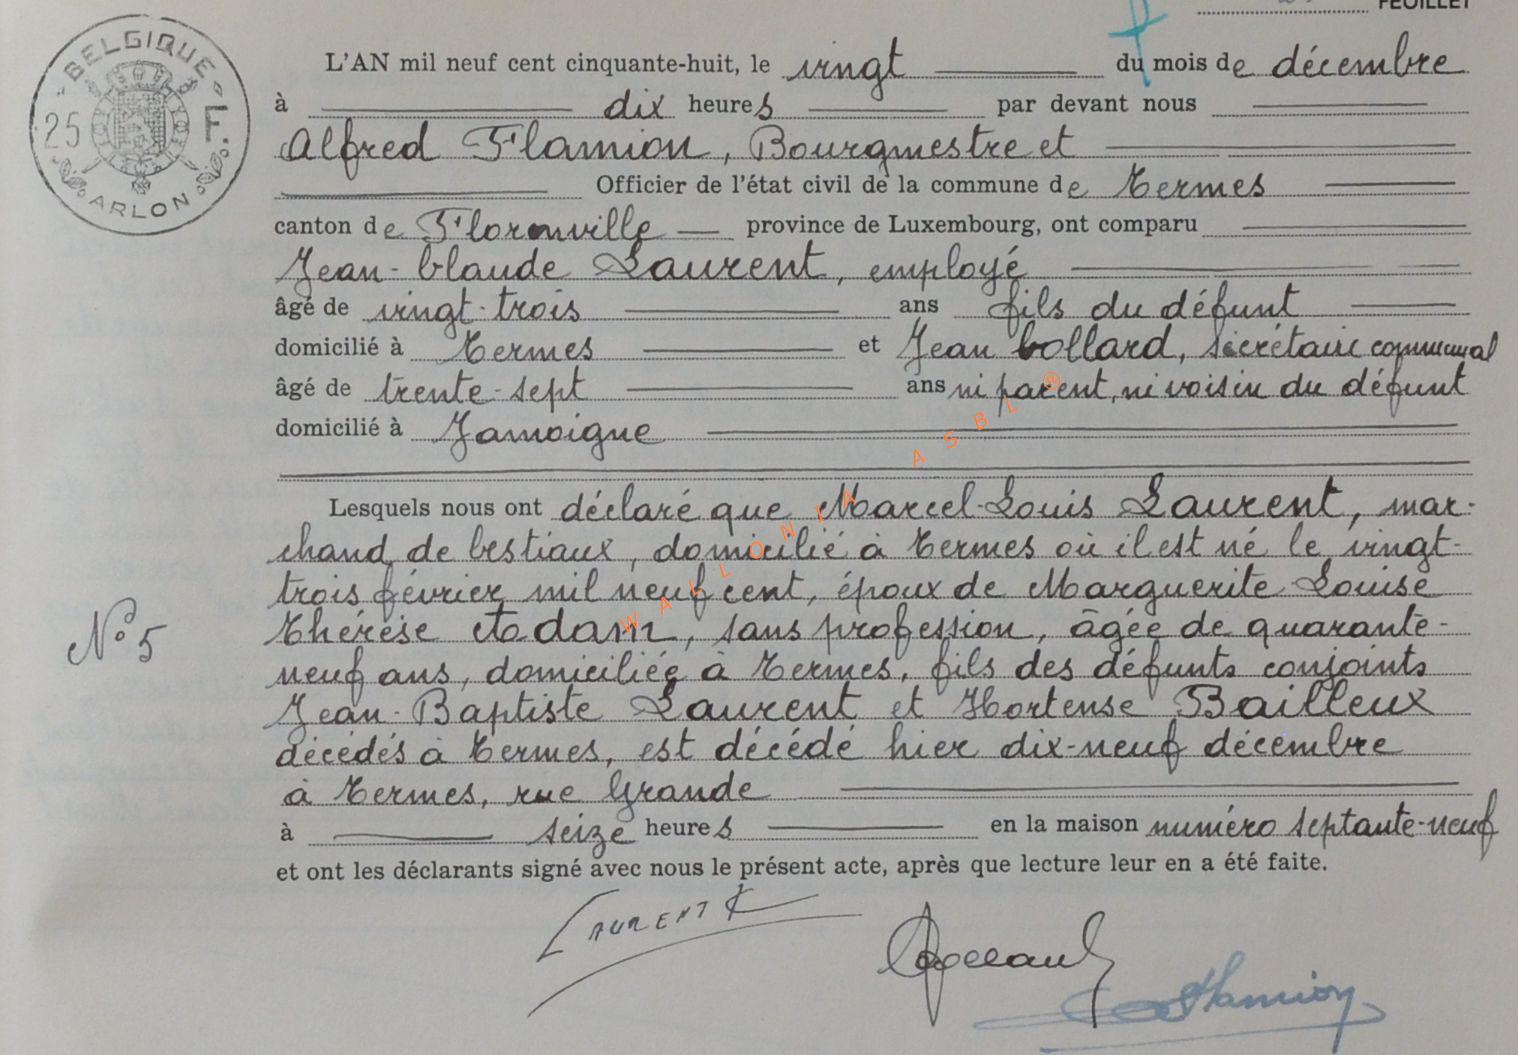 FEUILLET
BELGIQUE
25 F.
ARLON
L'AN mil neuf cent cinquante-huit, le vingt du mois de décembre
à dix heures par devant nous
Alfred Flamion, Bourgmestre et
Officier de l'état civil de la commune de Termes
canton de Florenville province de Luxembourg, ont comparu
Jean-Claude Laurent, employé
âgé de vingt-trois ans fils du défunt
domicilié à Termes et Jean Collard, secrétaire communal
âgé de trente-sept ans ni parent, ni voisin du défunt
domicilié à Jamoigne
Lesquels nous ont déclaré que Marcel-Louis Laurent, mar-
chand de bestiaux, domicilié à Termes où il est né le vingt-
trois février mil neuf cent, époux de Marguerite Louise
Thérèse Adam, sans profession, âgée de quarante-
neuf ans, domiciliée à Termes, fils des défunts conjoints
Jean-Baptiste Laurent et Hortense Bailleux
décédés à Termes, est décédé hier dix-neuf décembre
à Termes, rue Grande
à seize heures en la maison numéro septante-neuf
et ont les déclarants signé avec nous le présent acte, après que lecture leur en a été faite.
N° 5
WALLONIA ASBL ®
LAURENT
Flamion